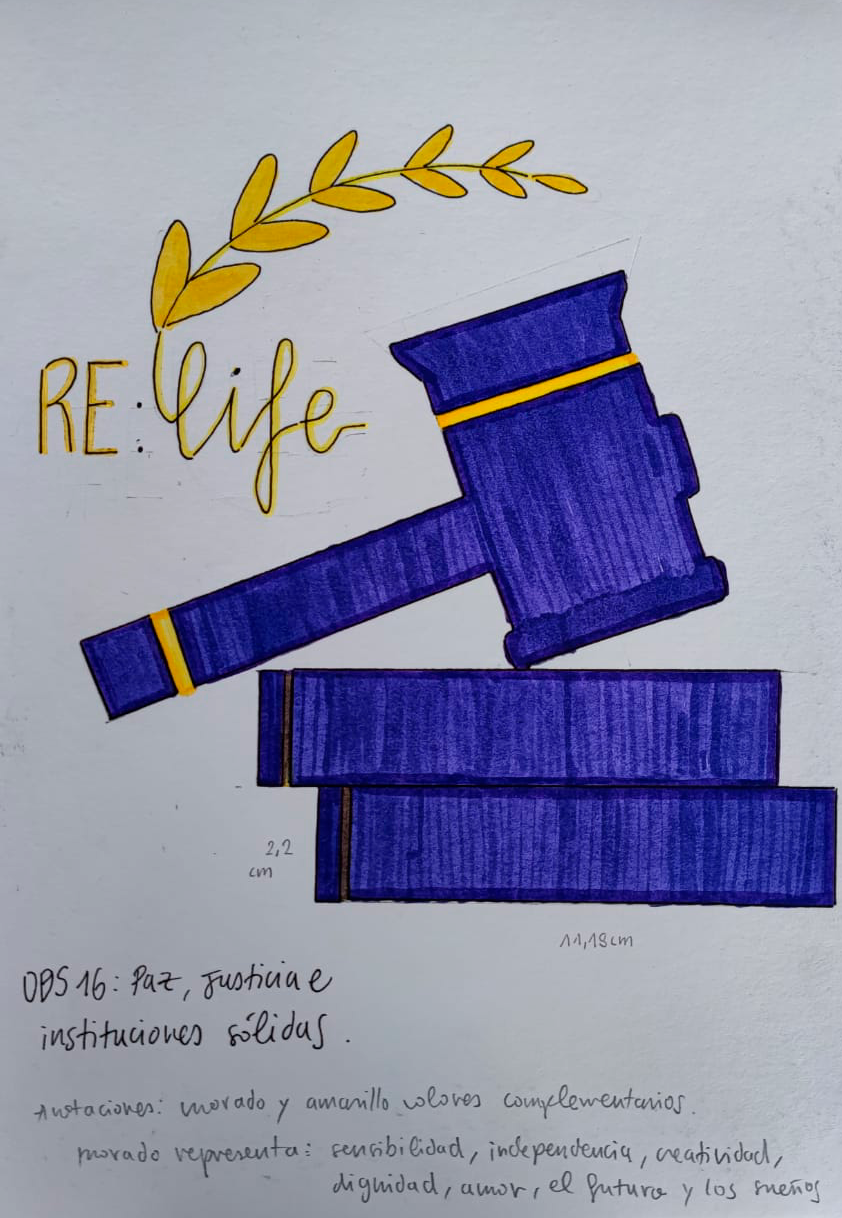 RE:life
2,2
cm
11,18cm
ODS 16: Paz, Justicia e
instituciones sólidas.
Anotaciones: morado y amarillo colores complementarios.
morado representa: sensibilidad, independencia, creatividad,
dignidad, amor, el futuro y los sueños